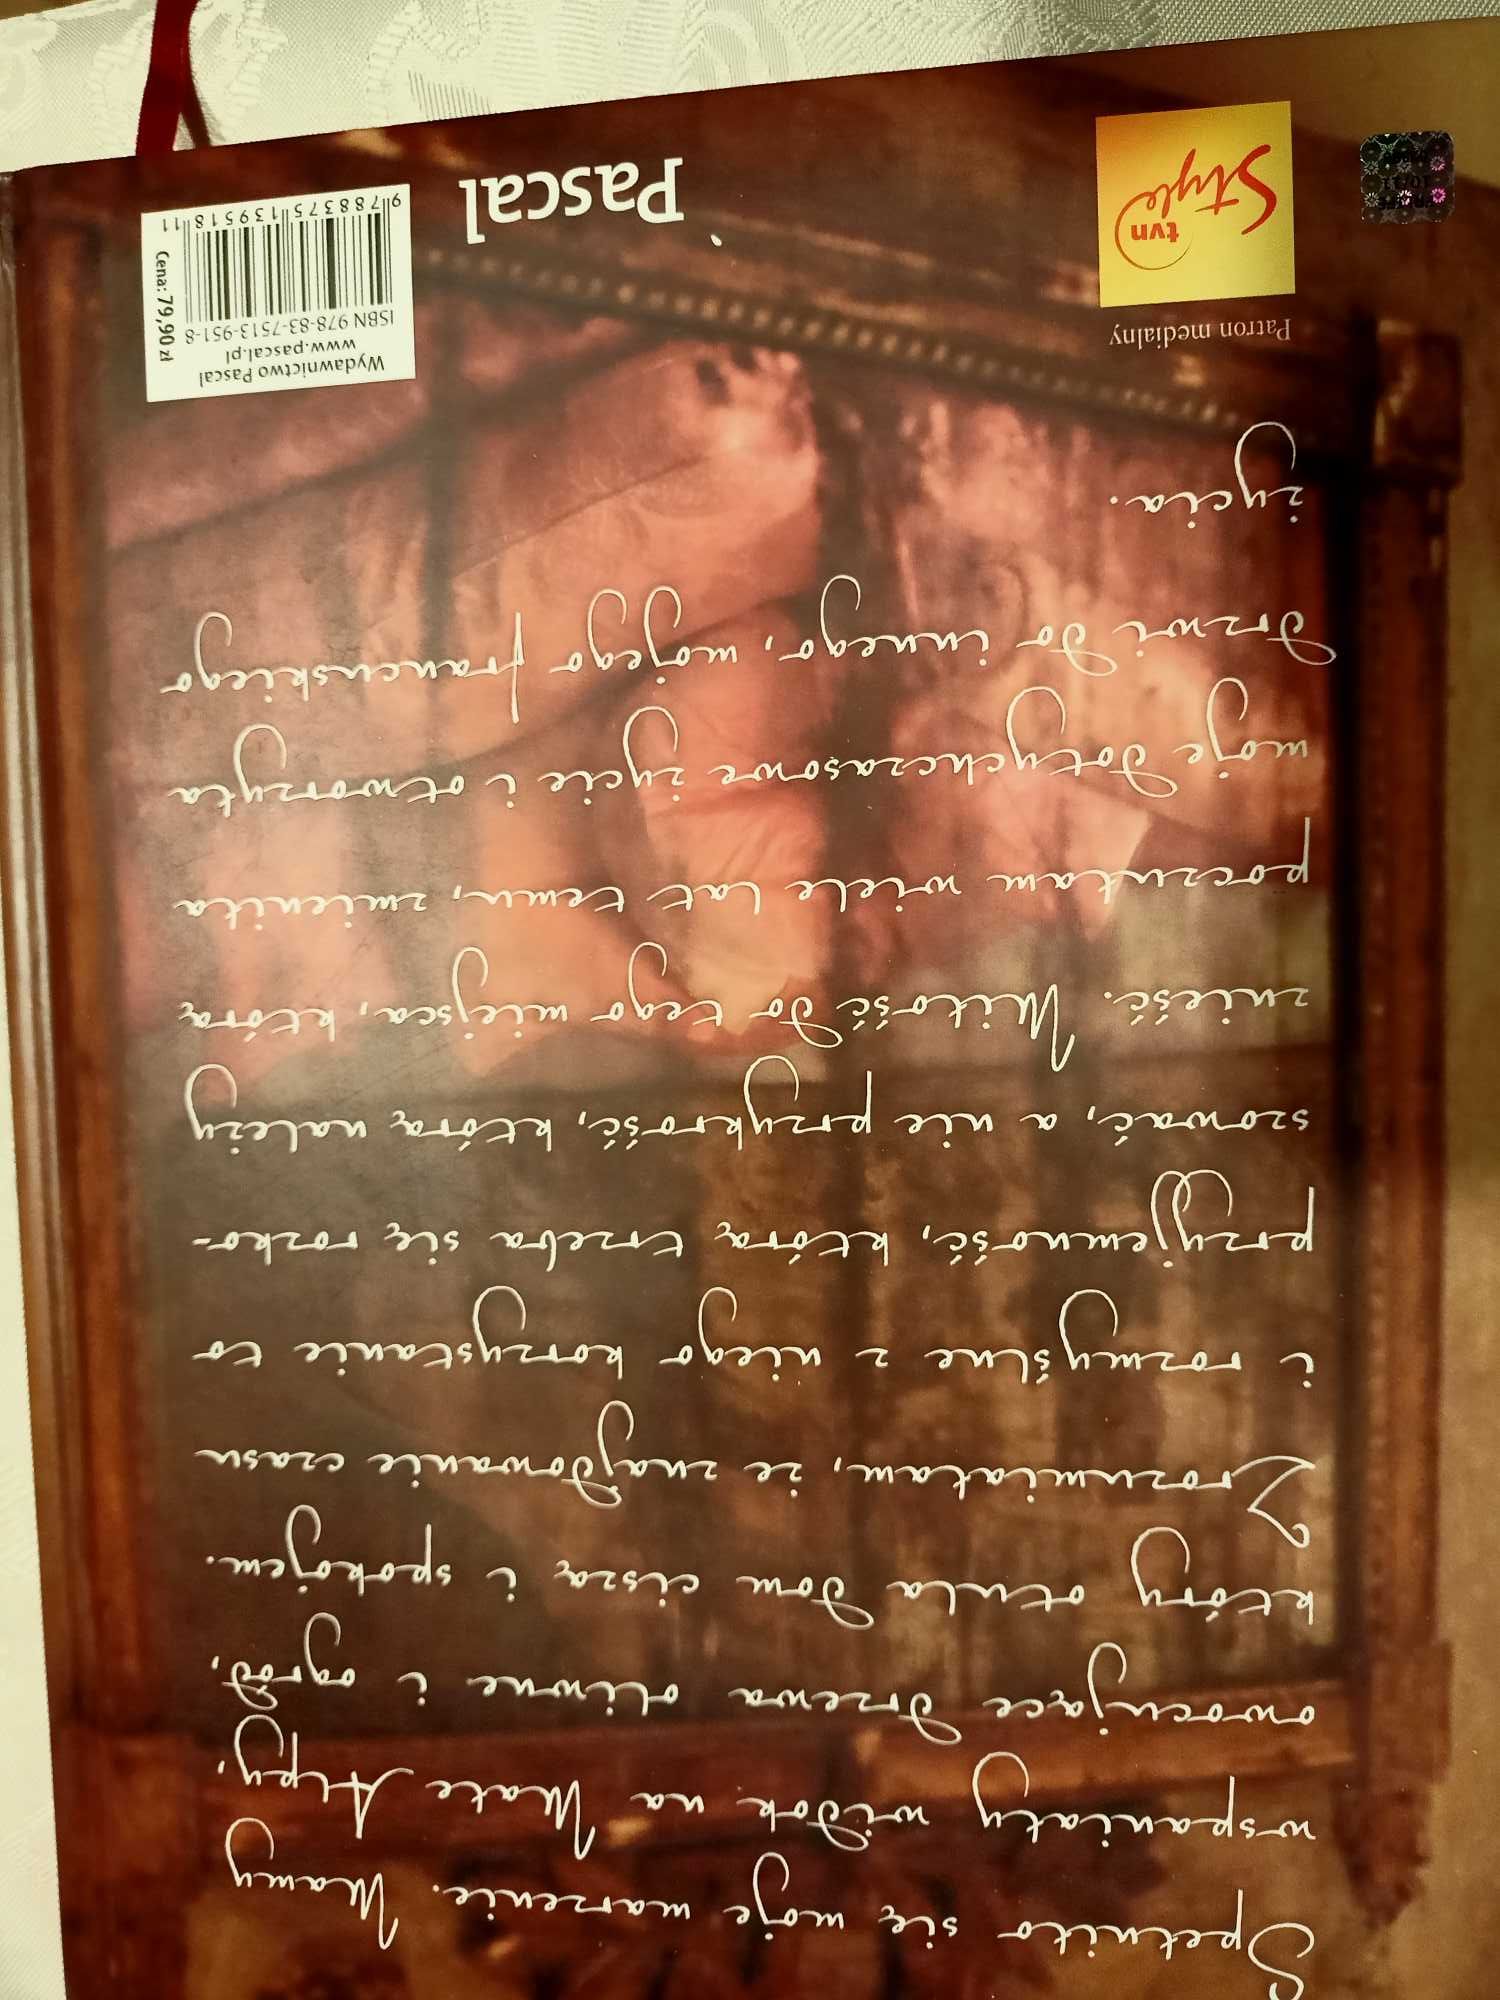 Spełniło się moje marzenie. Mamy
wspaniały widok na Małe Alpy,
owocujące drzewa oliwne i ogród,
który otula dom ciszą i spokojem.
Zrozumiałam, że znajdowanie czasu
i rozmyślne z niego korzystanie to
przyjemność, którą trzeba się rozko-
szować, a nie przykrość, którą należy
znieść. Miłość do tego miejsca, którą
poczułam wiele lat temu, zmieniła
moje dotychczasowe życie i otworzyła
drzwi do innego, mojego francuskiego
życia.
Patron medialny
tvn
Style
Pascal
Wydawnictwo Pascal
www.pascal.pl
ISBN 978-83-7513-951-8
Cena: 79,90 zł
9 788375 139518 11